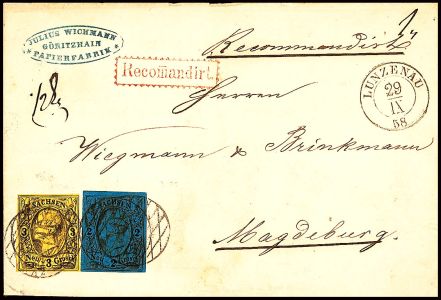 JULIUS WICHMANN
GÖRITZHAIN
PAPIERFABRIK
Recommandirt
Recom̄andirt.
LUNZENAU
29
IX
58
Herren
Wiegmann & Brinkmann
Magdeburg.
SACHSEN
3 3
3
SACHSEN
2 2
2